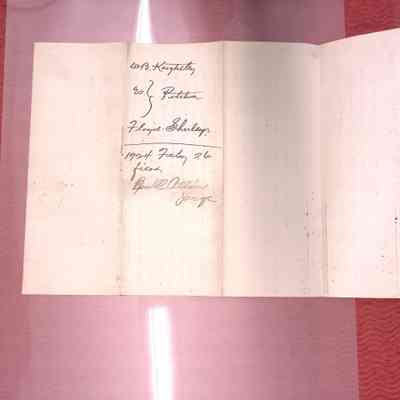 W.B. Keightley
} Petition
Floyd Shirley
1924 Feby 26
filed
Judge